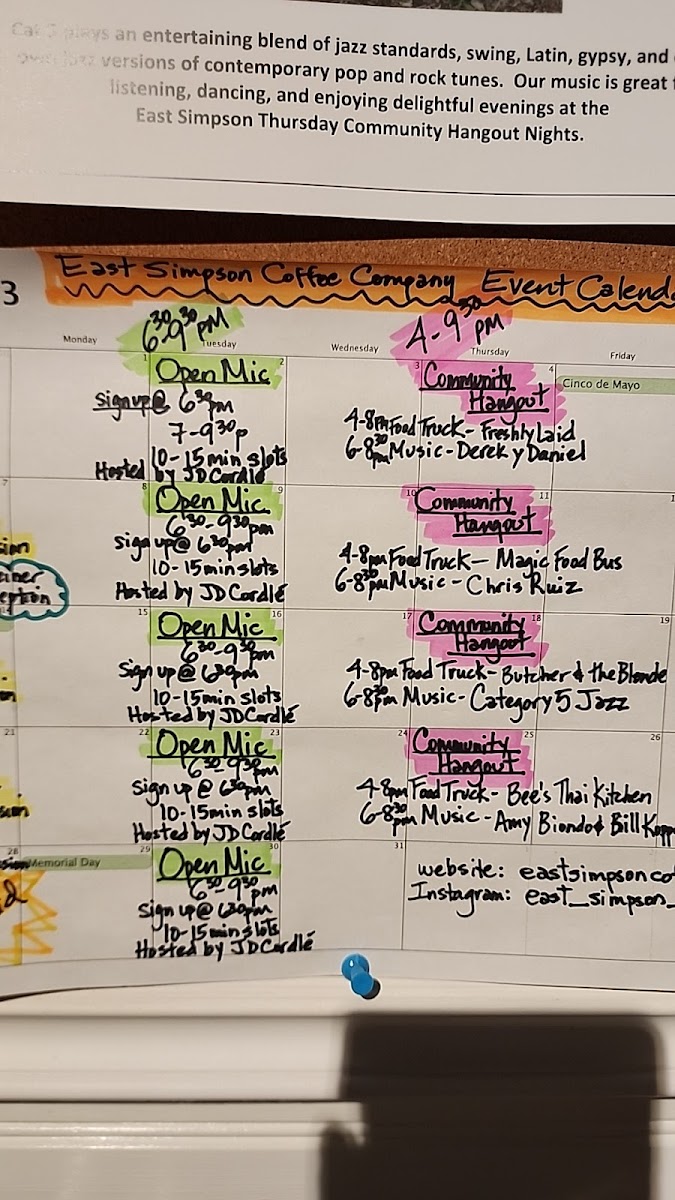 plays an entertaining blend of jazz standards, swing, Latin, gypsy, and
versions of contemporary pop and rock tunes. Our music is great
listening, dancing, and enjoying delightful evenings at the
East Simpson Thursday Community Hangout Nights.
3
East Simpson Coffee Company Event Calend
6:30-9:30 PM
4-9:30 PM
Monday Tuesday Wednesday Thursday Friday
1 2 3 4
Open Mic
Sign up @ 6:30pm
7-9:30p
10-15 min slots
Hosted by JD Cordlé
Community
Hangout
4-8pm Food Truck - Freshly Laid
6-8:30pm Music - Derek y Daniel
Cinco de Mayo
7 8 9 10 11 1
Open Mic
6:30-9:30pm
sign up @ 6:30pm
10-15 min slots
Hosted by JD Cordlé
Community
Hangout
4-8pm Food Truck - Magic Food Bus
6-8:30pm Music - Chris Ruiz
15 16 17 18 19
Open Mic
6:30-9:30pm
Sign up @ 6:30pm
10-15 min slots
Hosted by JD Cordlé
Community
Hangout
4-8pm Food Truck - Butcher & the Blonde
6-8:30pm Music - Category 5 Jazz
21 22 23 24 25 26
Open Mic
6:30-9:30pm
Sign up @ 6:30pm
10-15 min slots
Hosted by JD Cordlé
Community
Hangout
4-8pm Food Truck - Bee's Thai Kitchen
6-8:30pm Music - Amy Biondo & Bill Kopp
28 29 30 31
Memorial Day
Open Mic
6:30-9:30pm
Sign up @ 6:30pm
10-15 min slots
Hosted by JD Cordlé
website: eastsimpsonco
Instagram: east_simpson_